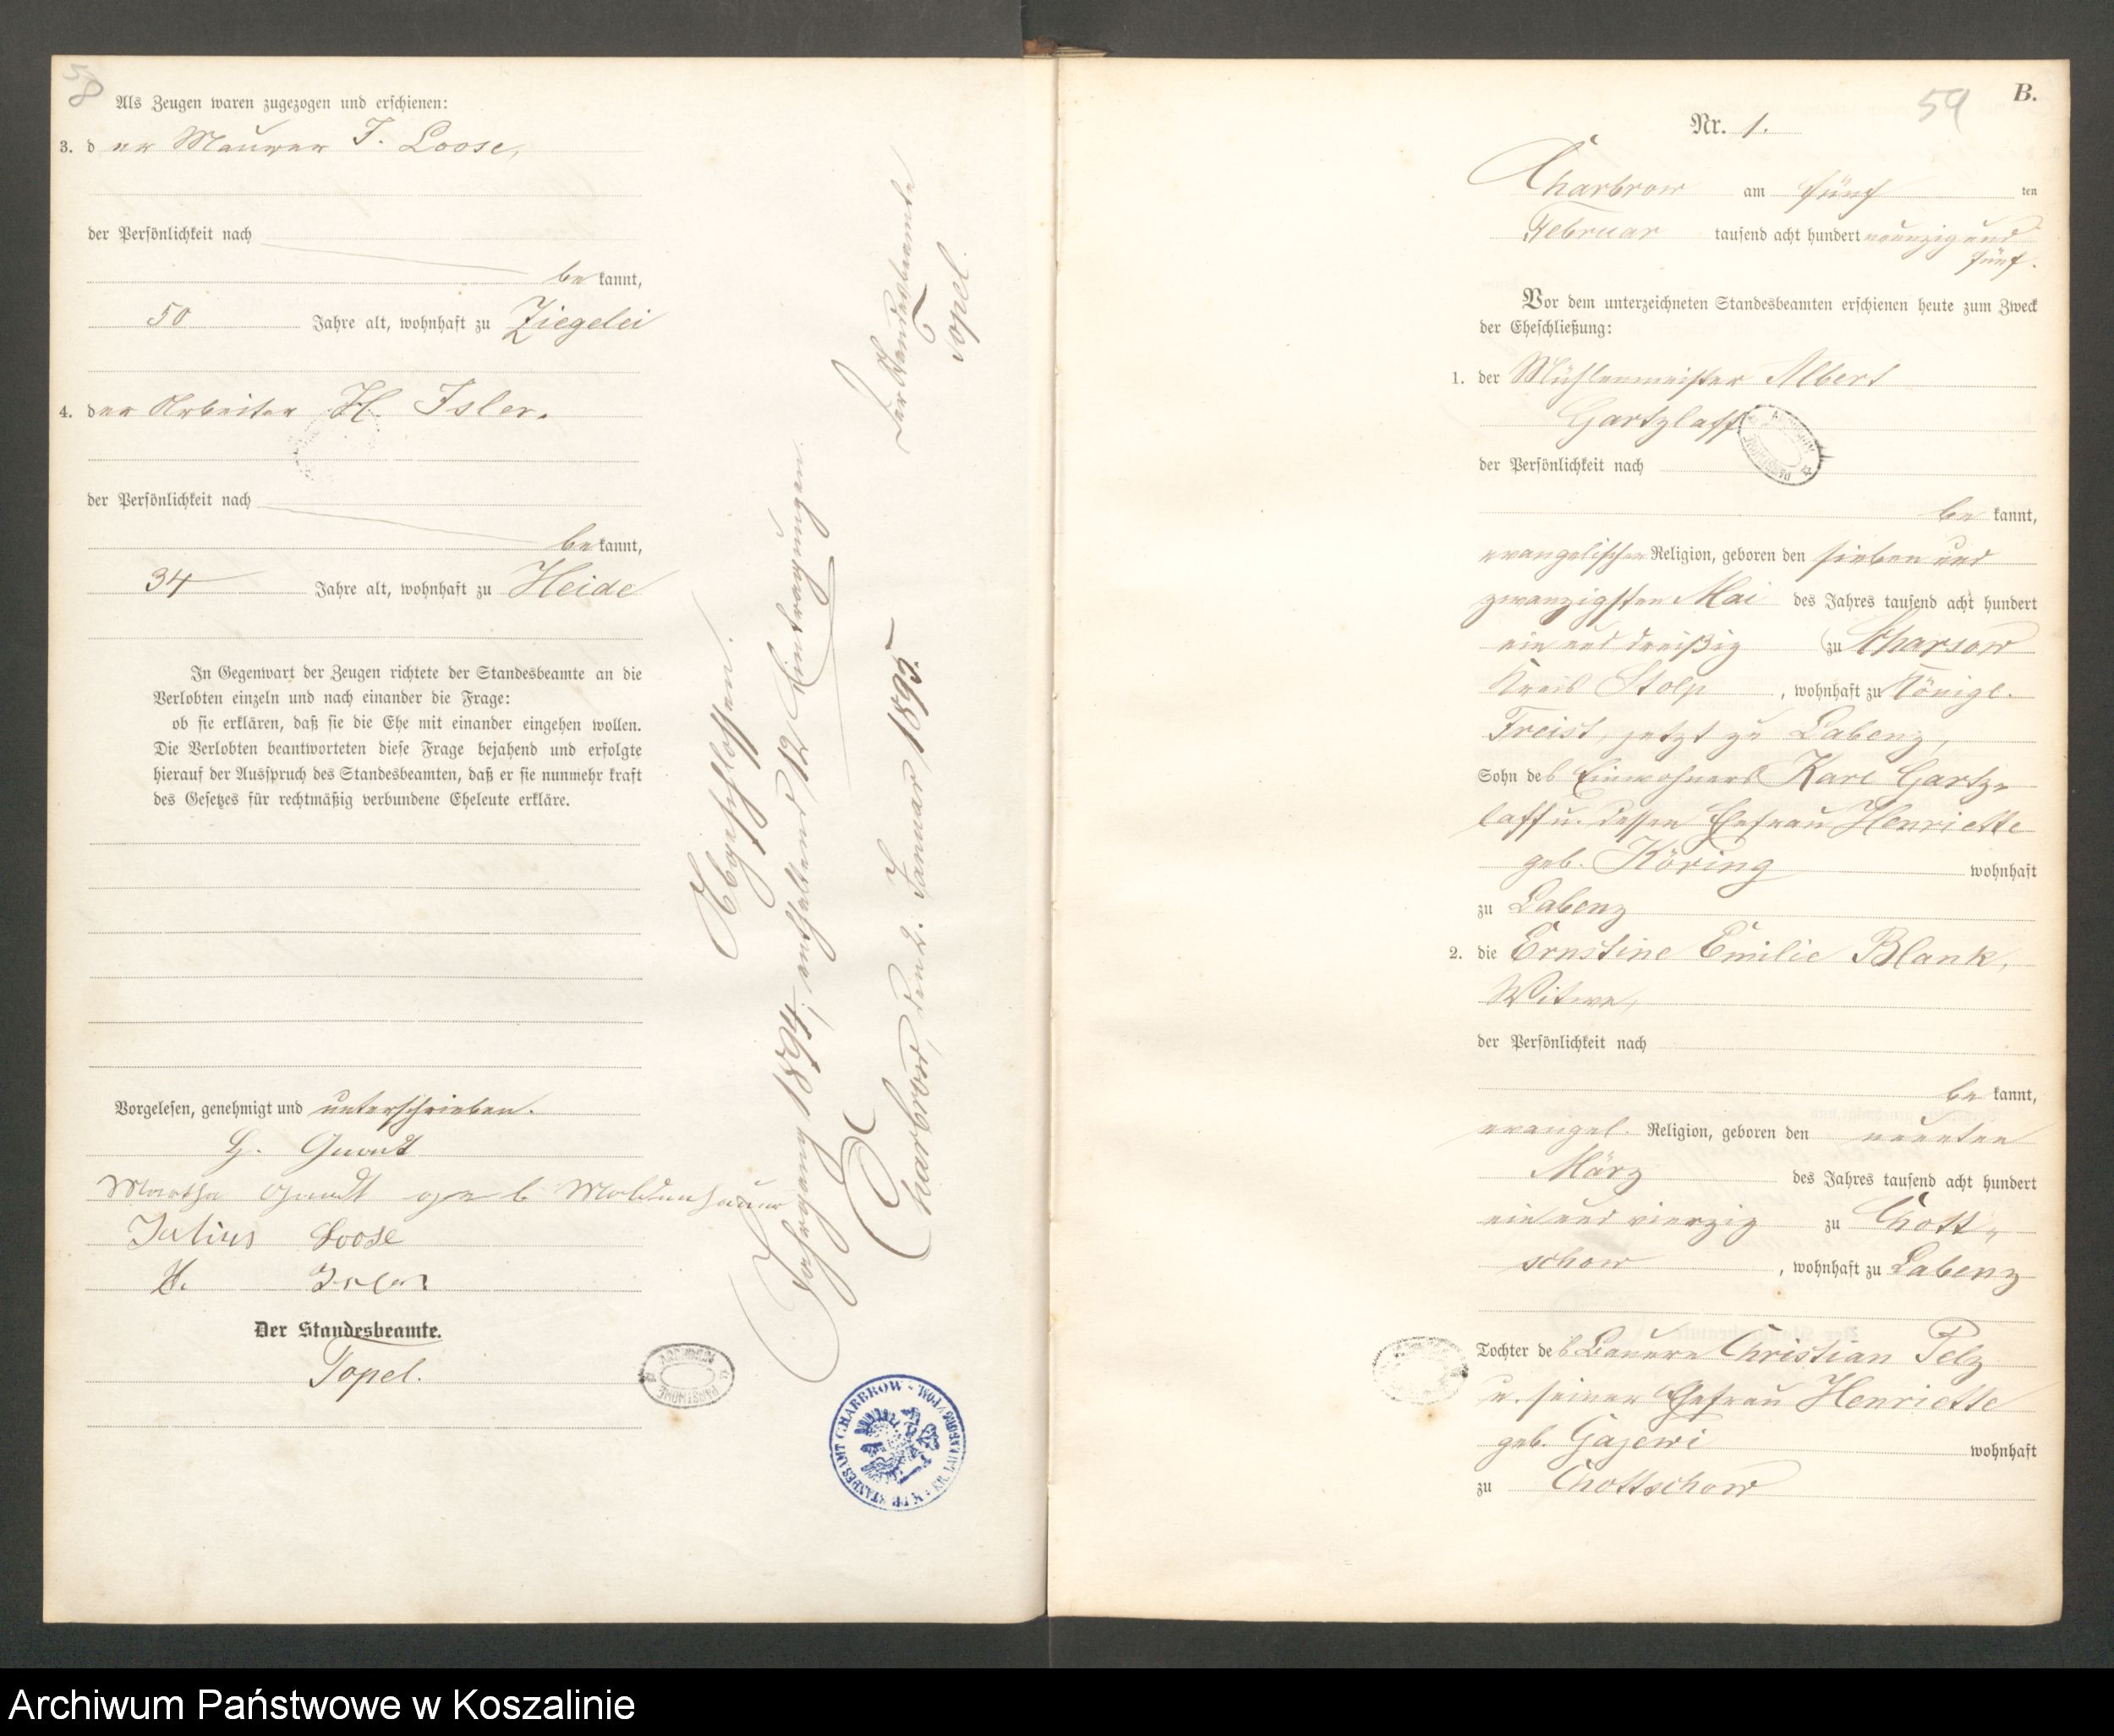 58
Als Zeugen waren zugezogen und erschienen:
3. d er Maurer J. Loose,
der Persönlichkeit nach
be kannt,
50 Jahre alt, wohnhaft zu Ziegelei
4. der Arbeiter H. Isler.
der Persönlichkeit nach
be kannt,
34 Jahre alt, wohnhaft zu Heide
In Gegenwart der Zeugen richtete der Standesbeamte an die
Verlobten einzeln und nach einander die Frage:
ob sie erklären, daß sie die Ehe mit einander eingehen wollen.
Die Verlobten beantworteten diese Frage bejahend und erfolgte
hierauf der Ausspruch des Standesbeamten, daß er sie nunmehr kraft
des Gesetzes für rechtmäßig verbundene Eheleute erkläre.
Vorgelesen, genehmigt und unterschrieben.
Martha geb Moldenhauer
Julius Loose
H. Isler
Der Standesbeamte.
Topel.
Abgeschlossen.
Jahrgang 1894, enthaltend 12 Eintragungen
Charbrow, den 2. Januar 1895.
Der Standesbeamte
Topel.
STANDESAMT CHARBROW
B.
59
Nr. 1.
Charbrow am fünf ten
Februar tausend acht hundert neunzig und
fünf.
Vor dem unterzeichneten Standesbeamten erschienen heute zum Zweck
der Eheschließung:
1. der Mühlenmeister Albert
Gartzlaff
der Persönlichkeit nach
be kannt,
evangelischer Religion, geboren den sieben und
zwanzigsten Mai des Jahres tausend acht hundert
ein und dreißig zu Scharsow
Kreis Stolp , wohnhaft zu Königl.
Freist, jetzt zu Labenz,
Sohn des Einwohners Karl Gartz-
laff u. dessen Ehefrau Henriette
geb. Köring wohnhaft
zu Labenz
2. die Ernstine Emilie Blank,
Witwe,
der Persönlichkeit nach
be kannt,
evangel. Religion, geboren den neunten
März des Jahres tausend acht hundert
ein und vierzig zu Chott-
schow , wohnhaft zu Labenz
Tochter des Bauern Christian Pelz
u. seiner Ehefrau Henriette
geb. Gajewi wohnhaft
zu Chottschow
Archiwum Państwowe w Koszalinie